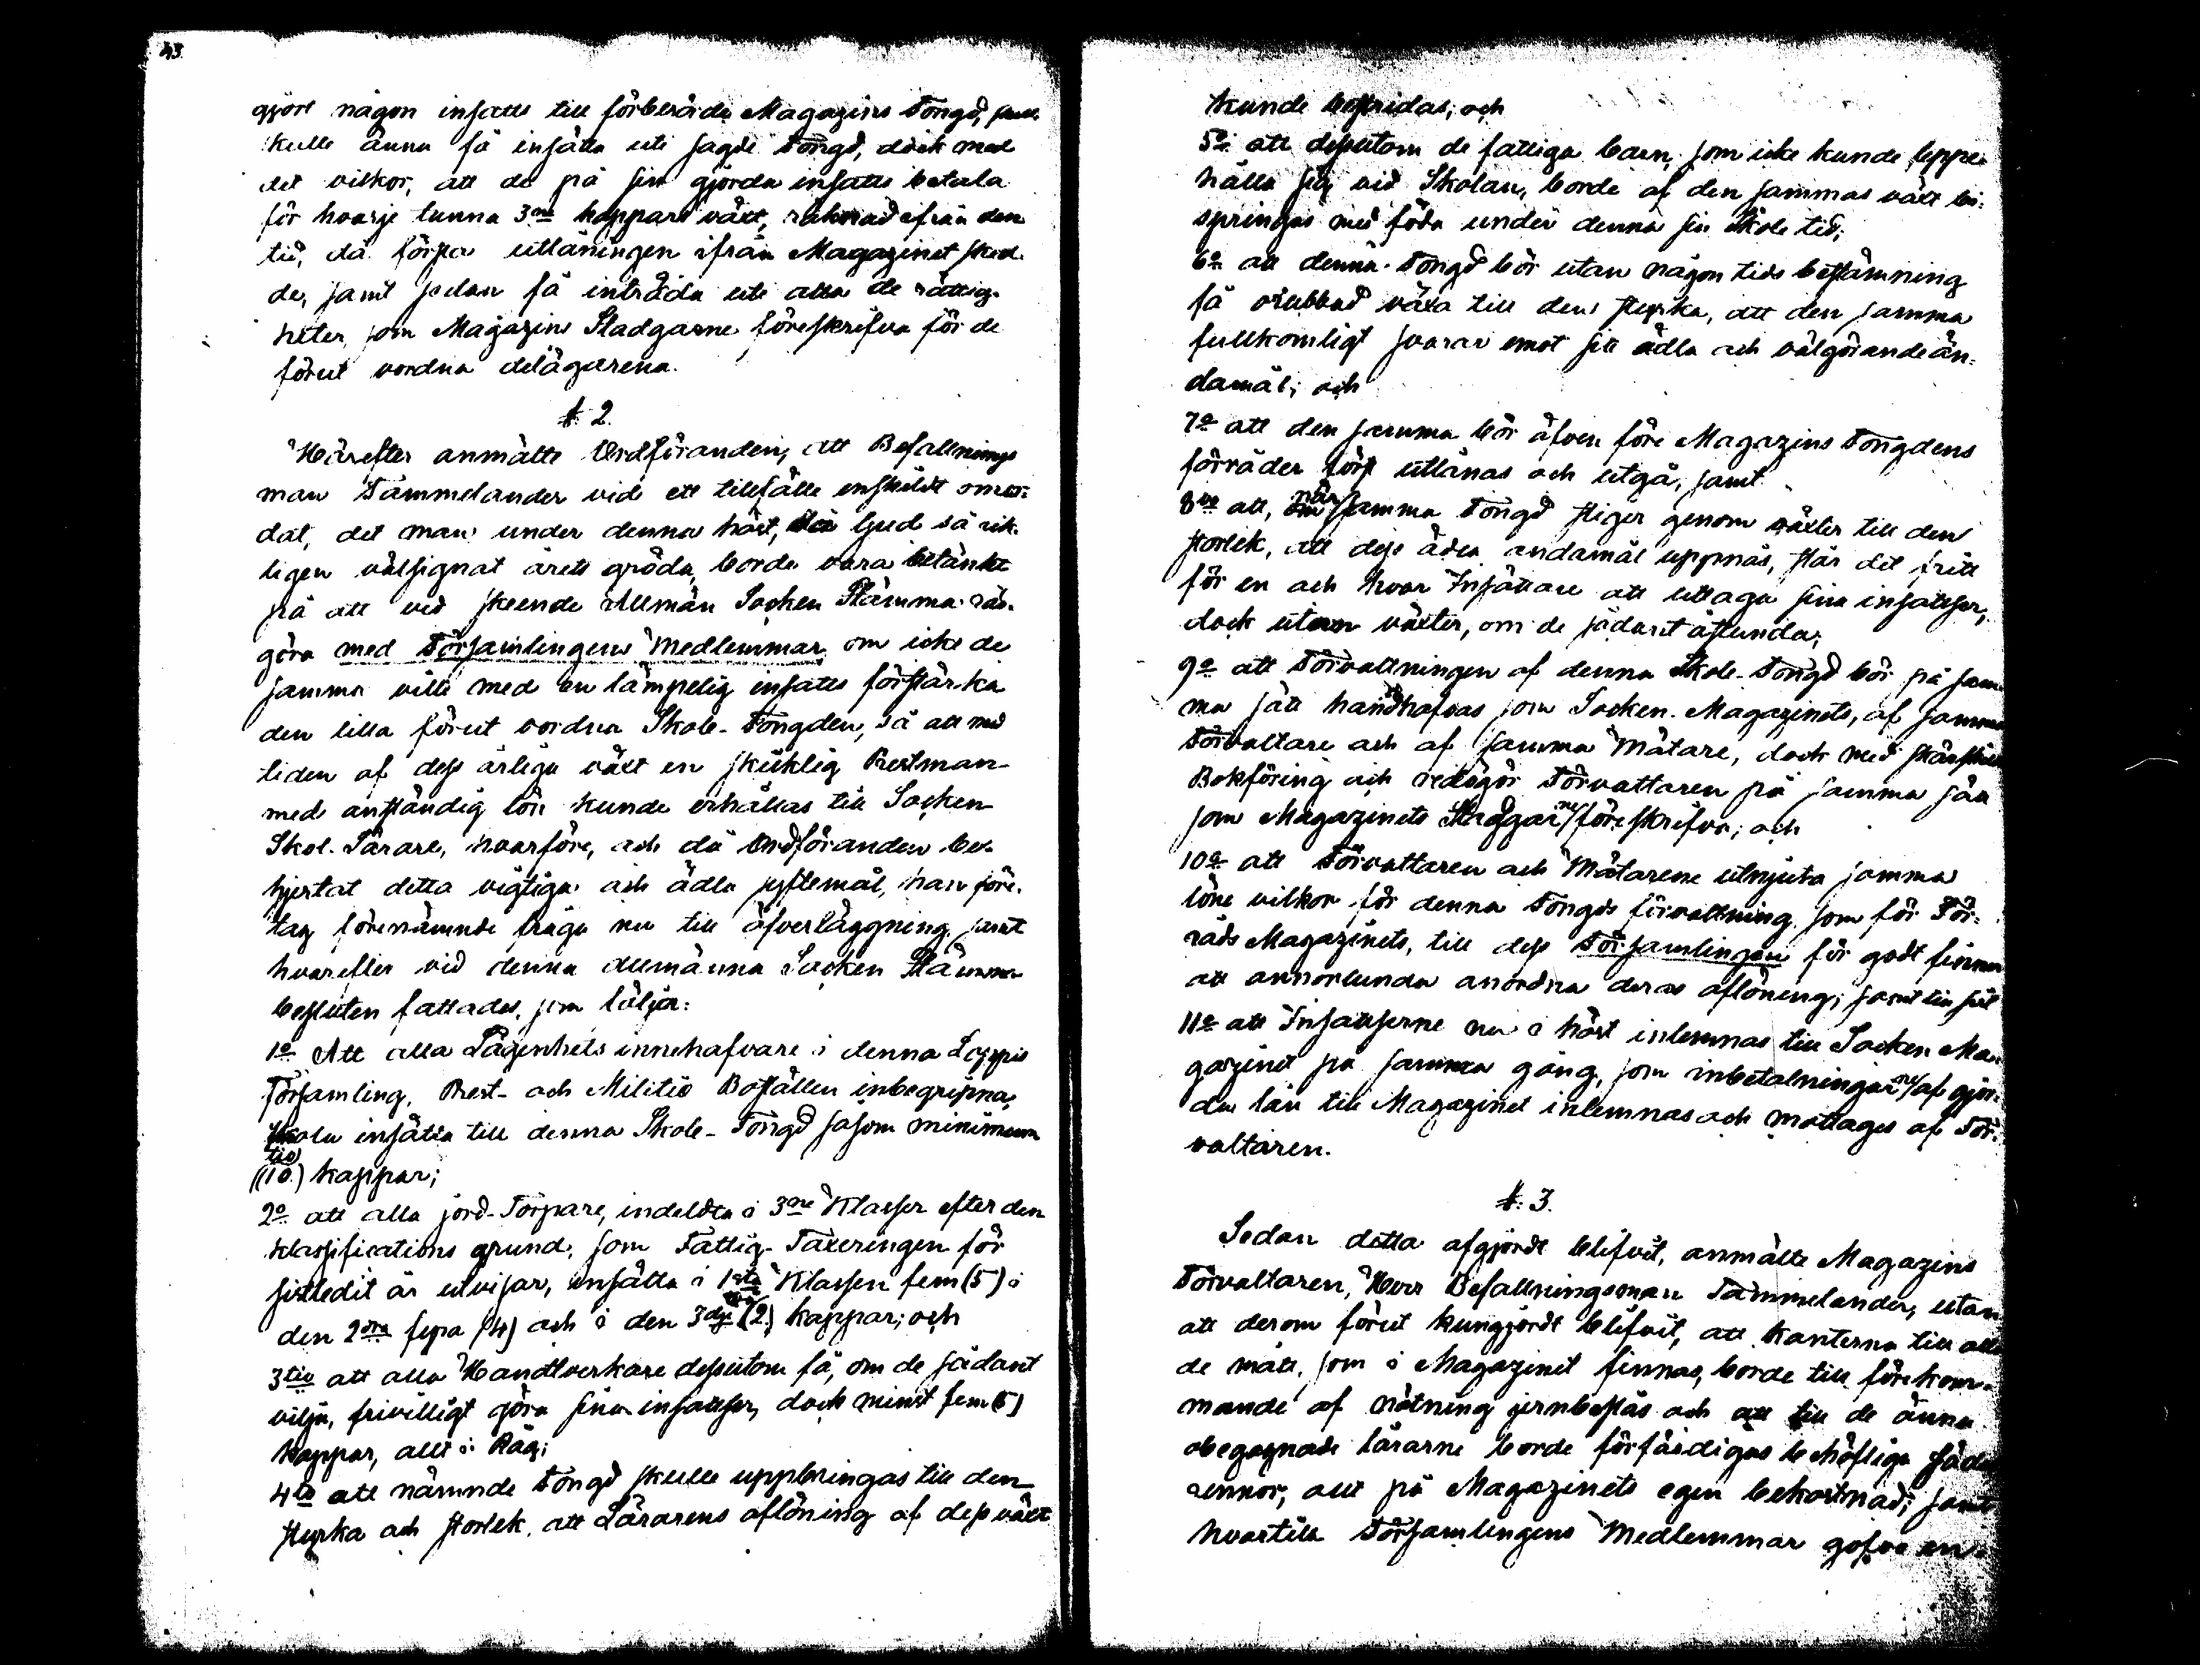 43.
gjort någon insatts till förberörde Magazins Fongd, samt
skulle ännu få insätta uti sagde Fongd, dock med
det vilkor, att de på sin gjorda insatts betala
för hvarje tunna 3ne kappars växt, räknad ifrån den
tid, då första utlåningen ifrån Magazinet sked-
de, samt sedan få inträda uti alla de rättig-
heter, som Magazins Stadgarne föreskrifva för de
förut vordna delägarena.
§. 2.
Härefter anmälte Ordföranden, att Befallnings
man Tammelander vid ett tillfälle enskildt omor-
dat, det man under denna höst, då Gud så rik-
ligen välsignat årets gröda, borde vara betänkt
på att vid skeende Allmän Socken Stämma råd-
göra med Församlingens Medlemmar om icke de
samma ville med en lämpelig insatts förstärka
den lilla förut vordna Skole-Fongden, så att med
tiden af dess årliga växt en skicklig Prestman
med anständig lön kunde erhållas till Socken
Skol-Lärare, hvarföre, och då Ordföranden be-
hjertat detta vigtiga och ädla syftemål, han före-
tag förenämnde fråga nu till öfverläggning, samt
hvarefter vid denna allmänna Socken Stämma
besluten fattades, som följer:
1o Att alla Lägenhets innehafvare i denna Loppis
Församling, Prest- och Militie Boställen inbegripna,
skola insätta till denna Skole-Fongd såsom minimum
tio
(10.) kappar;
2o att alla jord-Torpare, indelta i 3ne Klasser efter den
klassifications grund, som Fattig-Taxeringen för
sistledit år utvisar, insätta i 1sta Klassen fem (5) i
den 2dra fyra (4) och i den 3dje två (2.) kappar; och
3tio att alla Handtverkare dessutom få, om de sådant
vilja, frivilligt göra sina insattser, dock minst fem (5)
kappar, allt i Råg;
4to att nämnde Fongd skulle uppbringas till den
styrka och storlek, att Lärarens aflöning af dess växt
kunde bestridas; och
5o att dessutom de fattiga barn, som icke kunde uppe-
hålla sig vid Skolan, borde af den sammas växt bi-
springas med föda under denna sin Skole tid;
6o att denna Fongd bör utan någon tids bestämning
få orubbad växa till den styrka, att den samma
fullkomligt svarar emot sitt ädla och välgörande än-
damål; och
7o att den samma bör äfven före Magazins Fongdens
förråder först utlånas och utgå, samt
8vo att, när samma Fongd stiger genom växter till den
storlek, att dess ädla ändamål uppnås, står det fritt
för en och hvar Insättare att uttaga sina insattser,
dock utan växter, om de sådant åstunda;
9o att Förvaltningen af denna Skole-Fongd bör på sam-
ma sätt handhafvas som Socken-Magazinets, af samma
Förvaltare och af samma Mätare, dock med särskild
Bokföring och redogör Förvaltaren på samma sätt
som Magazinets Stadgarne föreskrifva; och
10o att Förvaltaren och Mätarene utnjuta samma
löne vilkor för denna Fongds förvaltning som för För-
råds Magazinets, till dess Församlingen för godt finner
att annorlunda anordna deras aflöning; samt till sist
11o att Insattserne nu i höst inlemnas till Socken Ma-
gazinet på samma gång, som inbetalningarne af gjor-
da lån till Magazinet inlemnas och mottages af För-
valtaren.
§. 3.
Sedan detta afgjordt blifvit, anmälte Magazins
Förvaltaren, Herr Befallningsman Tammelander, utan
att derom förut kungjordt blifvit, att kanterna till alla
de mått, som i Magazinet finnas, borde till förekom-
mande af nötning jernbeslås och att till de ännu
obegagnade lårarne borde förfärdigas behöfliga säd
rennor, allt på Magazinets egen bekostnad; samt
hvartill Församlingens Medlemmar gofvo en-